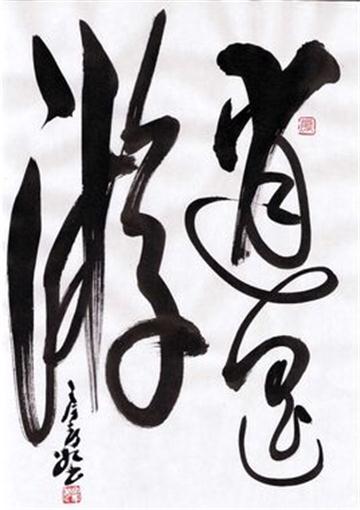 逍遥
游